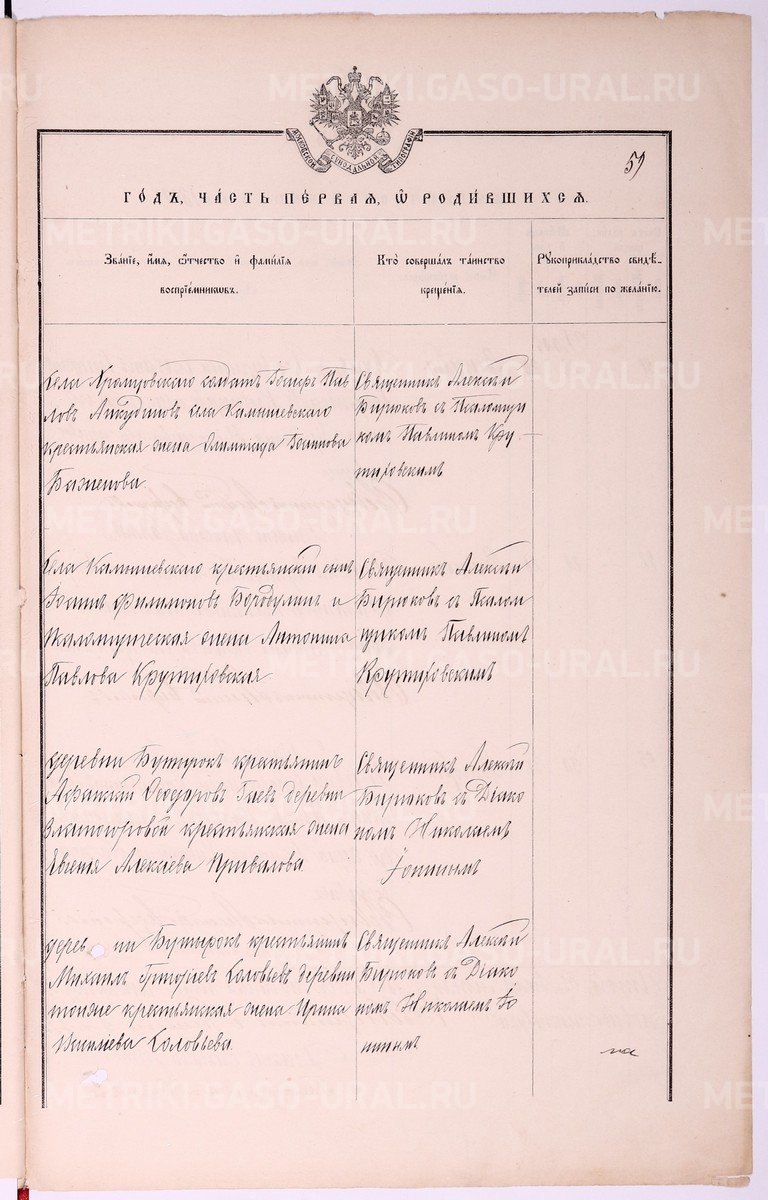 METRIKI.GASO-URAL.RU
МОСКОВСКОЙ СѴНОДАЛЬНОЙ ТИПОГРАФІИ
59
ГО́ДЪ, ЧА́СТЬ ПЕ́РВАѦ, Ѡ҆ РОДИ́ВШИХСѦ.
Зва́нїе, и҆́мѧ, ѻ҆́тчество и҆ фамѝлїѧ
воспрїе́мникѡвъ.
Кто̀ соверша́лъ та́инство
креще́нїѧ.
Рꙋкоприкла́дство свидѣ́-
телей за́писи по жела́нїю.
Села Хромцовскаго солдатъ Павловъ
села Камышевскаго
крестьянская жена Олимпіада Іоаннова
Баженова.
Священникъ Алексѣй
Бирюковъ съ Псаломщи
комъ Павлиномъ Кру
тиховскимъ
Села Камышевскаго крестьянскій сынъ
Іоаннъ Филимоновъ Бородулинъ и
Псаломщическая жена Антонина
Павлова Крутиховская
Священникъ Алексѣй
Бирюковъ съ Псалом
щикомъ Павлиномъ
Крутиховскимъ
деревни Бутырокъ крестьянинъ
Ѳеодоровъ деревни
крестьянская жена
Евгенія Алексіева Привалова.
Священникъ Алексѣй
Бирюковъ съ Діако
номъ Николаемъ
Іопинымъ
дерев ни Бутырокъ крестьянинъ
Михаилъ Григоріевъ Соловьевъ деревни
тояже крестьянская жена Ирина
Василіева Соловьева.
Священникъ Алексѣй
Бирюковъ съ Діако
номъ Николаемъ Іо
пинымъ